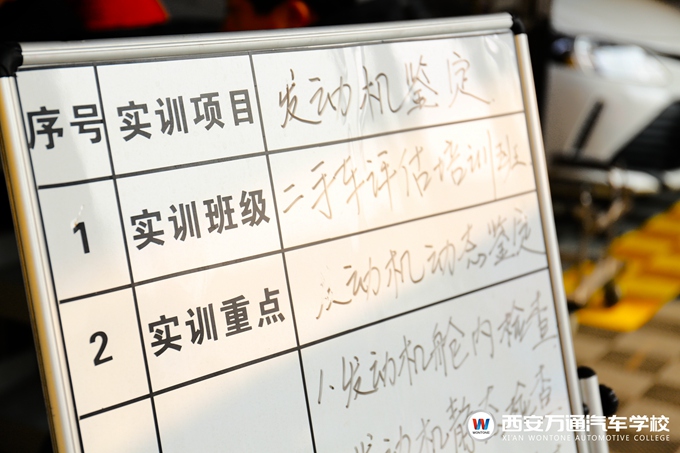 序号 实训项目 发动机鉴定
1 实训班级 二手车评估培训班
2 实训重点 发动机动态鉴定
1.发动机舱内检查
发动机静态检查
W
WONTONE
西安万通汽车学校
XI'AN WONTONE AUTOMOTIVE COLLEGE